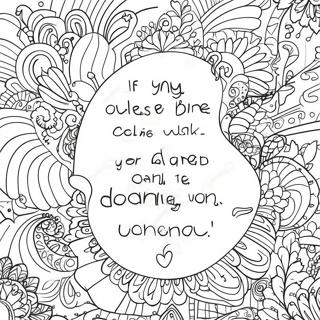 If yny
oulese Bine
Colie usk-
yor Glared
OANL IE
doanng von.
uonenou.'